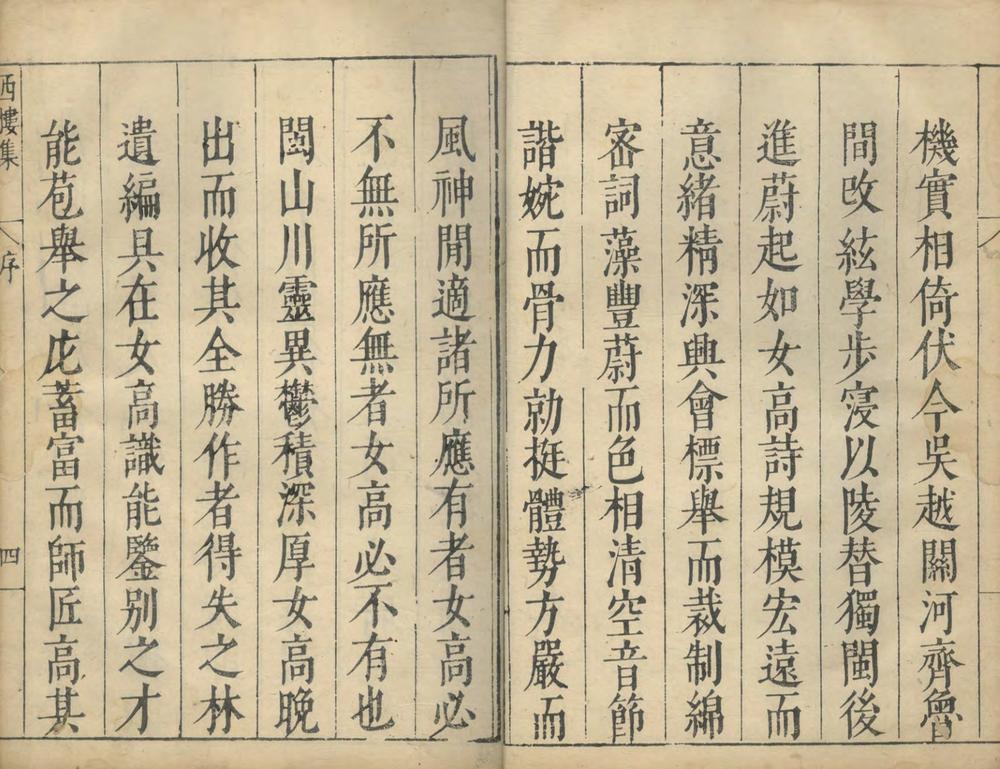 機實相倚伏今吳越關河齊魯
間改絃學步寖以陵替獨閩後
進蔚起如女高詩規模宏遠而
意緒精深興會標舉而裁制綿
密詞藻豐蔚而色相清空音節
諧婉而骨力勍挺體勢方嚴而
風神閒適諸所應有者女高必
不無所應無者女高必不有也
閩山川靈異鬱積深厚女高晚
出而收其全勝作者得失之林
遺編具在女高識能鑒別之才
能苞舉之庀蓄富而師匠高其
西樓集
序
四